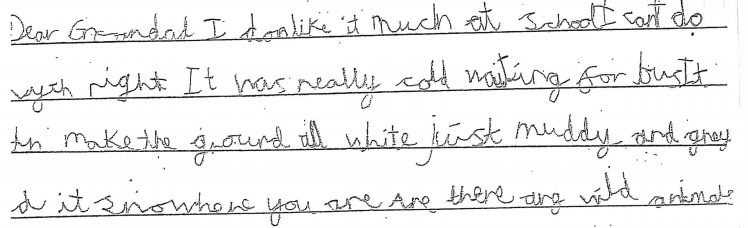 Dear Grandad I donlike it much at school I cant do
right It was really cold waiting for bus It
make the ground all white just muddy and grey
d it snow here you are Are there any wild animals